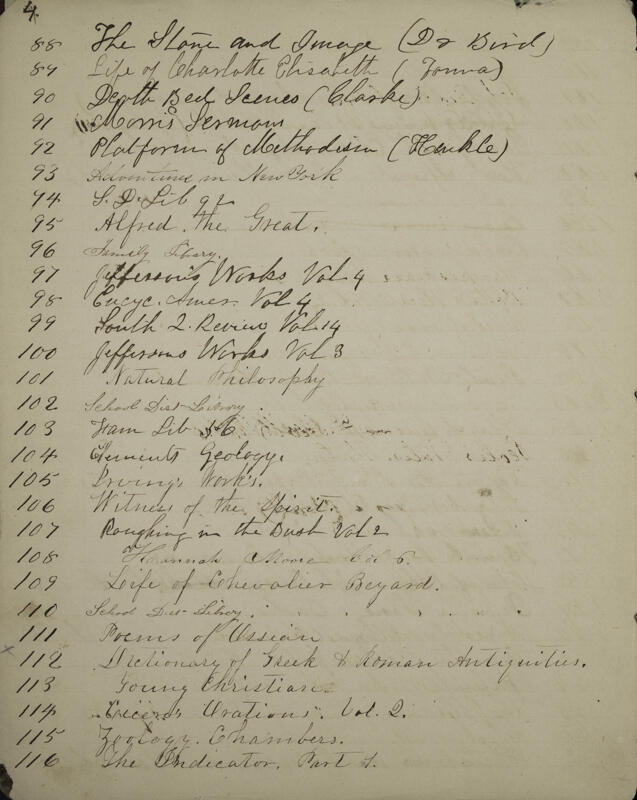 4.
88 The Stone and Image (Dr Bird)
89 Life of Charlotte Elisabeth (Tonna)
90 Death Bed Scenes (Clarke)
91 Morris Sermons
92 Platform of Methodism (Henkle)
93 Adventures in New York
94 S. D. Lib 92
95 Alfred the Great.
96 Family Libary.
97 Jefferson's Works Vol 4
98 Encyc. Amer. Vol 4
99 South 2. Review Vol 14
100 Jeffersons Works Vol 3
101 Natural Philosophy
102 School Dist Library.
103 Fam Lib
104 Elements Geology.
105 Irving's Works.
106 Witness of the Spirit.
107 Roughing in the Bush Vol 2
108 Hannah Moore Vol 6.
109 Life of Chevalier Bayard.
110 School Dist Library.
111 Poems of Ossian
112 Dictionary of Greek & Roman Antiquities.
113 Young Christian
114 Cicero's Orations. Vol. 2.
115 Zoology. Chambers.
116 The Indicator. Part 1.